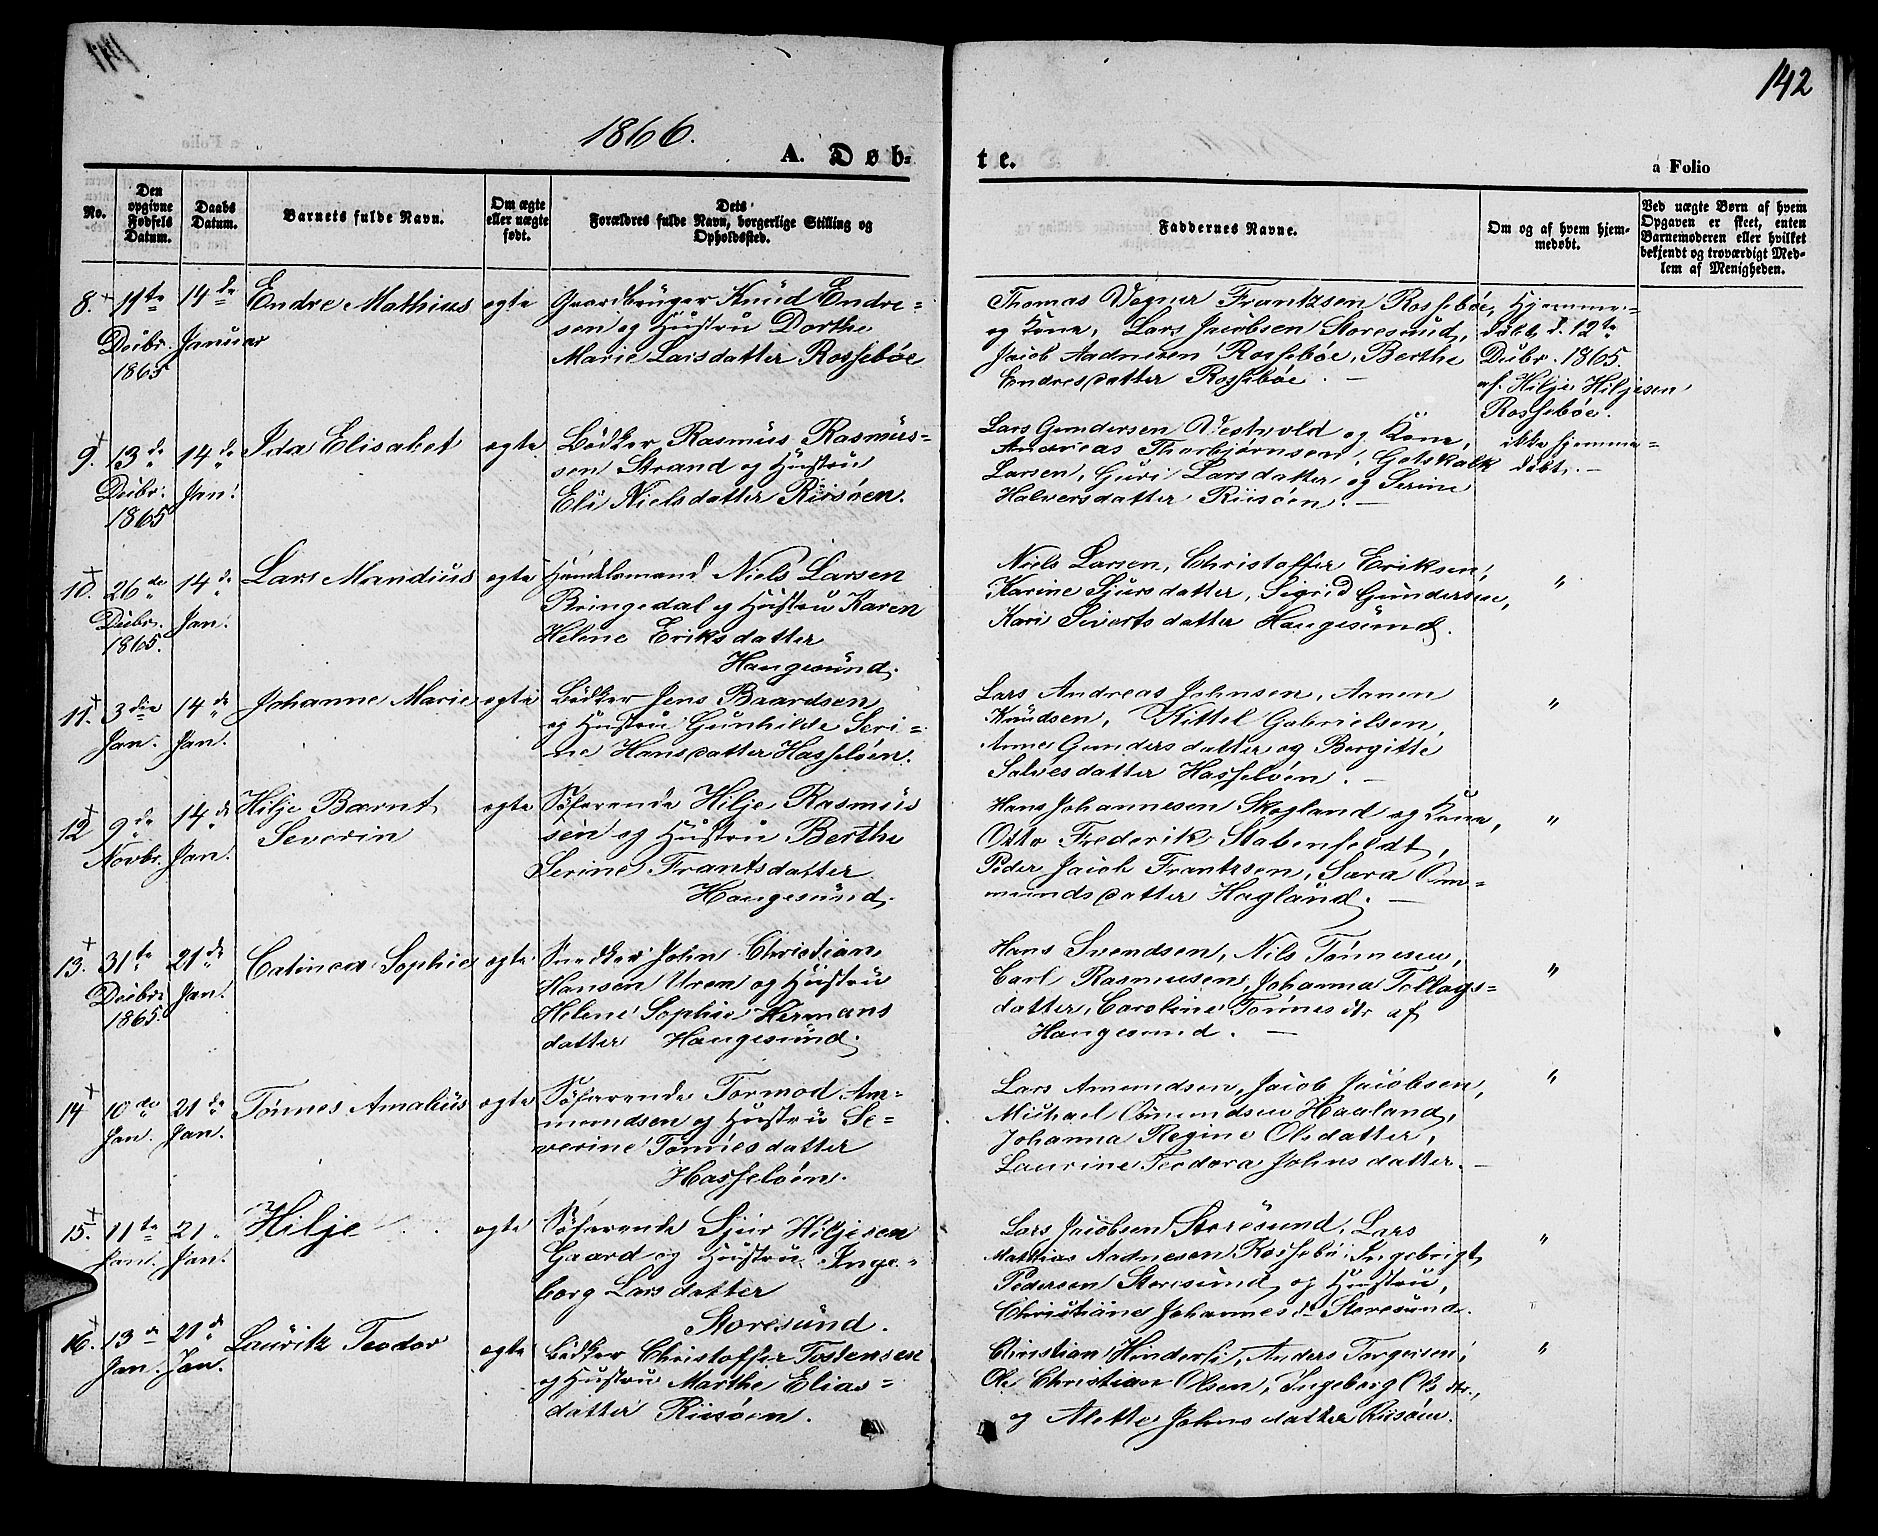 142
1866.
A. Døb-
te.
a Folio
No.
Den opgivne Fødsels Datum.
Daabs Datum.
Barnets fulde Navn.
Om ægte eller uægte født.
Dets Forældres fulde Navn, borgerlige Stilling og Opholdssted.
Faddernes Navne.
Om og af hvem hjem-
medøbt.
Ved uægte Børn af hvem
Opgaven er skeet, enten
Barnemoderen eller hvilket
bekjendt og troværdigt Med-
lem af Menigheden.
8. 11te Decbr. 1865
14de Januar
Endre Mathius
ægte
Gaardbruger Knud Endre-
sen og Hustru Dorthe
Marie Larsdatter Rossebøe
Thomas Frantzsen Rossebøe,
og Kone, Lars Jacobsen Storesund,
Jacob Aadnesen Rossebøe, Berthe
Endresdatter Rossebøe. —
Hjemme-
døbt d. 12te
Decbr. 1865.
af Hilje Hiljesen
Rossebøe.
9. 13de Decbr. 1865
14de Jan.
Ida Elisabet
ægte
Bødker Rasmus Rasmus-
sen Strand og Hustru
Eli Nielsdatter Risøen.
Lars Gundersen Vestvold og Kone,
Andreas Thorbjørnsen, Gotskalk
Larsen, Guri Larsdatter og Serine
Halversdatter Risøen. —
ikke hjemme-
døbt. —
10. 26de Decbr. 1865.
14de Jan.
Lars Mandius
ægte
Handelsmand Niels Larsen
Bringedal og Hustru Karen
Helene Eriksdatter
Haugesund.
Niels Larsen, Christoffer Eriksen,
Karine Sjursdatter, Sigrid Gundersen,
Kari Sivertsdatter Haugesund.
"
11. 3die Jan.
14de Jan.
Johanne Marie
ægte
Bødker Jens Baardsen
og Hustru Gunhilde Seri-
ne Hansdatter Hasseløen.
Lars Andreas Johnsen, Aanen
Knudsen, Kittel Gabrielsen,
Anne Gundersdatter og Bergitte
Salvesdatter Hasseløen. —
"
12 9de Novbr.
14de Jan.
Hilje Bærnt
Severin
ægte
Søfarende Hilje Rasmus
sen og Hustru Berthe
Serine Frantsdatter
Haugesund.
Hans Johannesen Skogland og Kone,
Otto Frederik Stabenfeldt,
Peder Jacob Frantzsen, Sara Om-
mundsdatter Hagland. —
"
13. 31te Decbr. 1865.
21de Jan.
Catinca Sophie
ægte
Snedker John Christian
Hansen Uren og Hustru
Helene Sophie Hermans
datter Haugesund.
Hans Svendsen, Nils Tønnesen,
Carl Rasmusen, Johanna Tollags-
datter, Caroline Tønnesdtr af
Haugesund. —
"
14 10de Jan.
21de Jan.
Tønnes Amalius
ægte
Søfarende Tormod Am-
mundsen og Hustru Se-
verine Tønnesdatter
Hasseløen.
Lars Amundsen, Jacob Jacobsen,
Michael Omundsen Haaland,
Johanna Regine Olsdatter,
Laurine Teodora Johnsdatter. —
"
15. 11te Jan.
21. Jan.
Hilje
ægte
Søfarende Sjur Hiljesen
Gaard og Hustru Inge-
borg Larsdatter
Storesund.
Lars Jacobsen Storesund, Lars
Mathias Aadnesen Rossebø, Ingebrigt
Pedersen Storesund og Hustru,
Christiane Johannesdr Storesund.
"
16. 13de Jan.
21de Jan.
Lauritz Teodor
ægte
Bødker Christoffer Tostensen
og Hustru Marthe Elias-
datter Risøen.
Christian Hinderli, Anders Torgersen,
Ole Christian Olsen, Ingeborg Ols dtr.,
og Alette Johnsdatter Risøen.
"